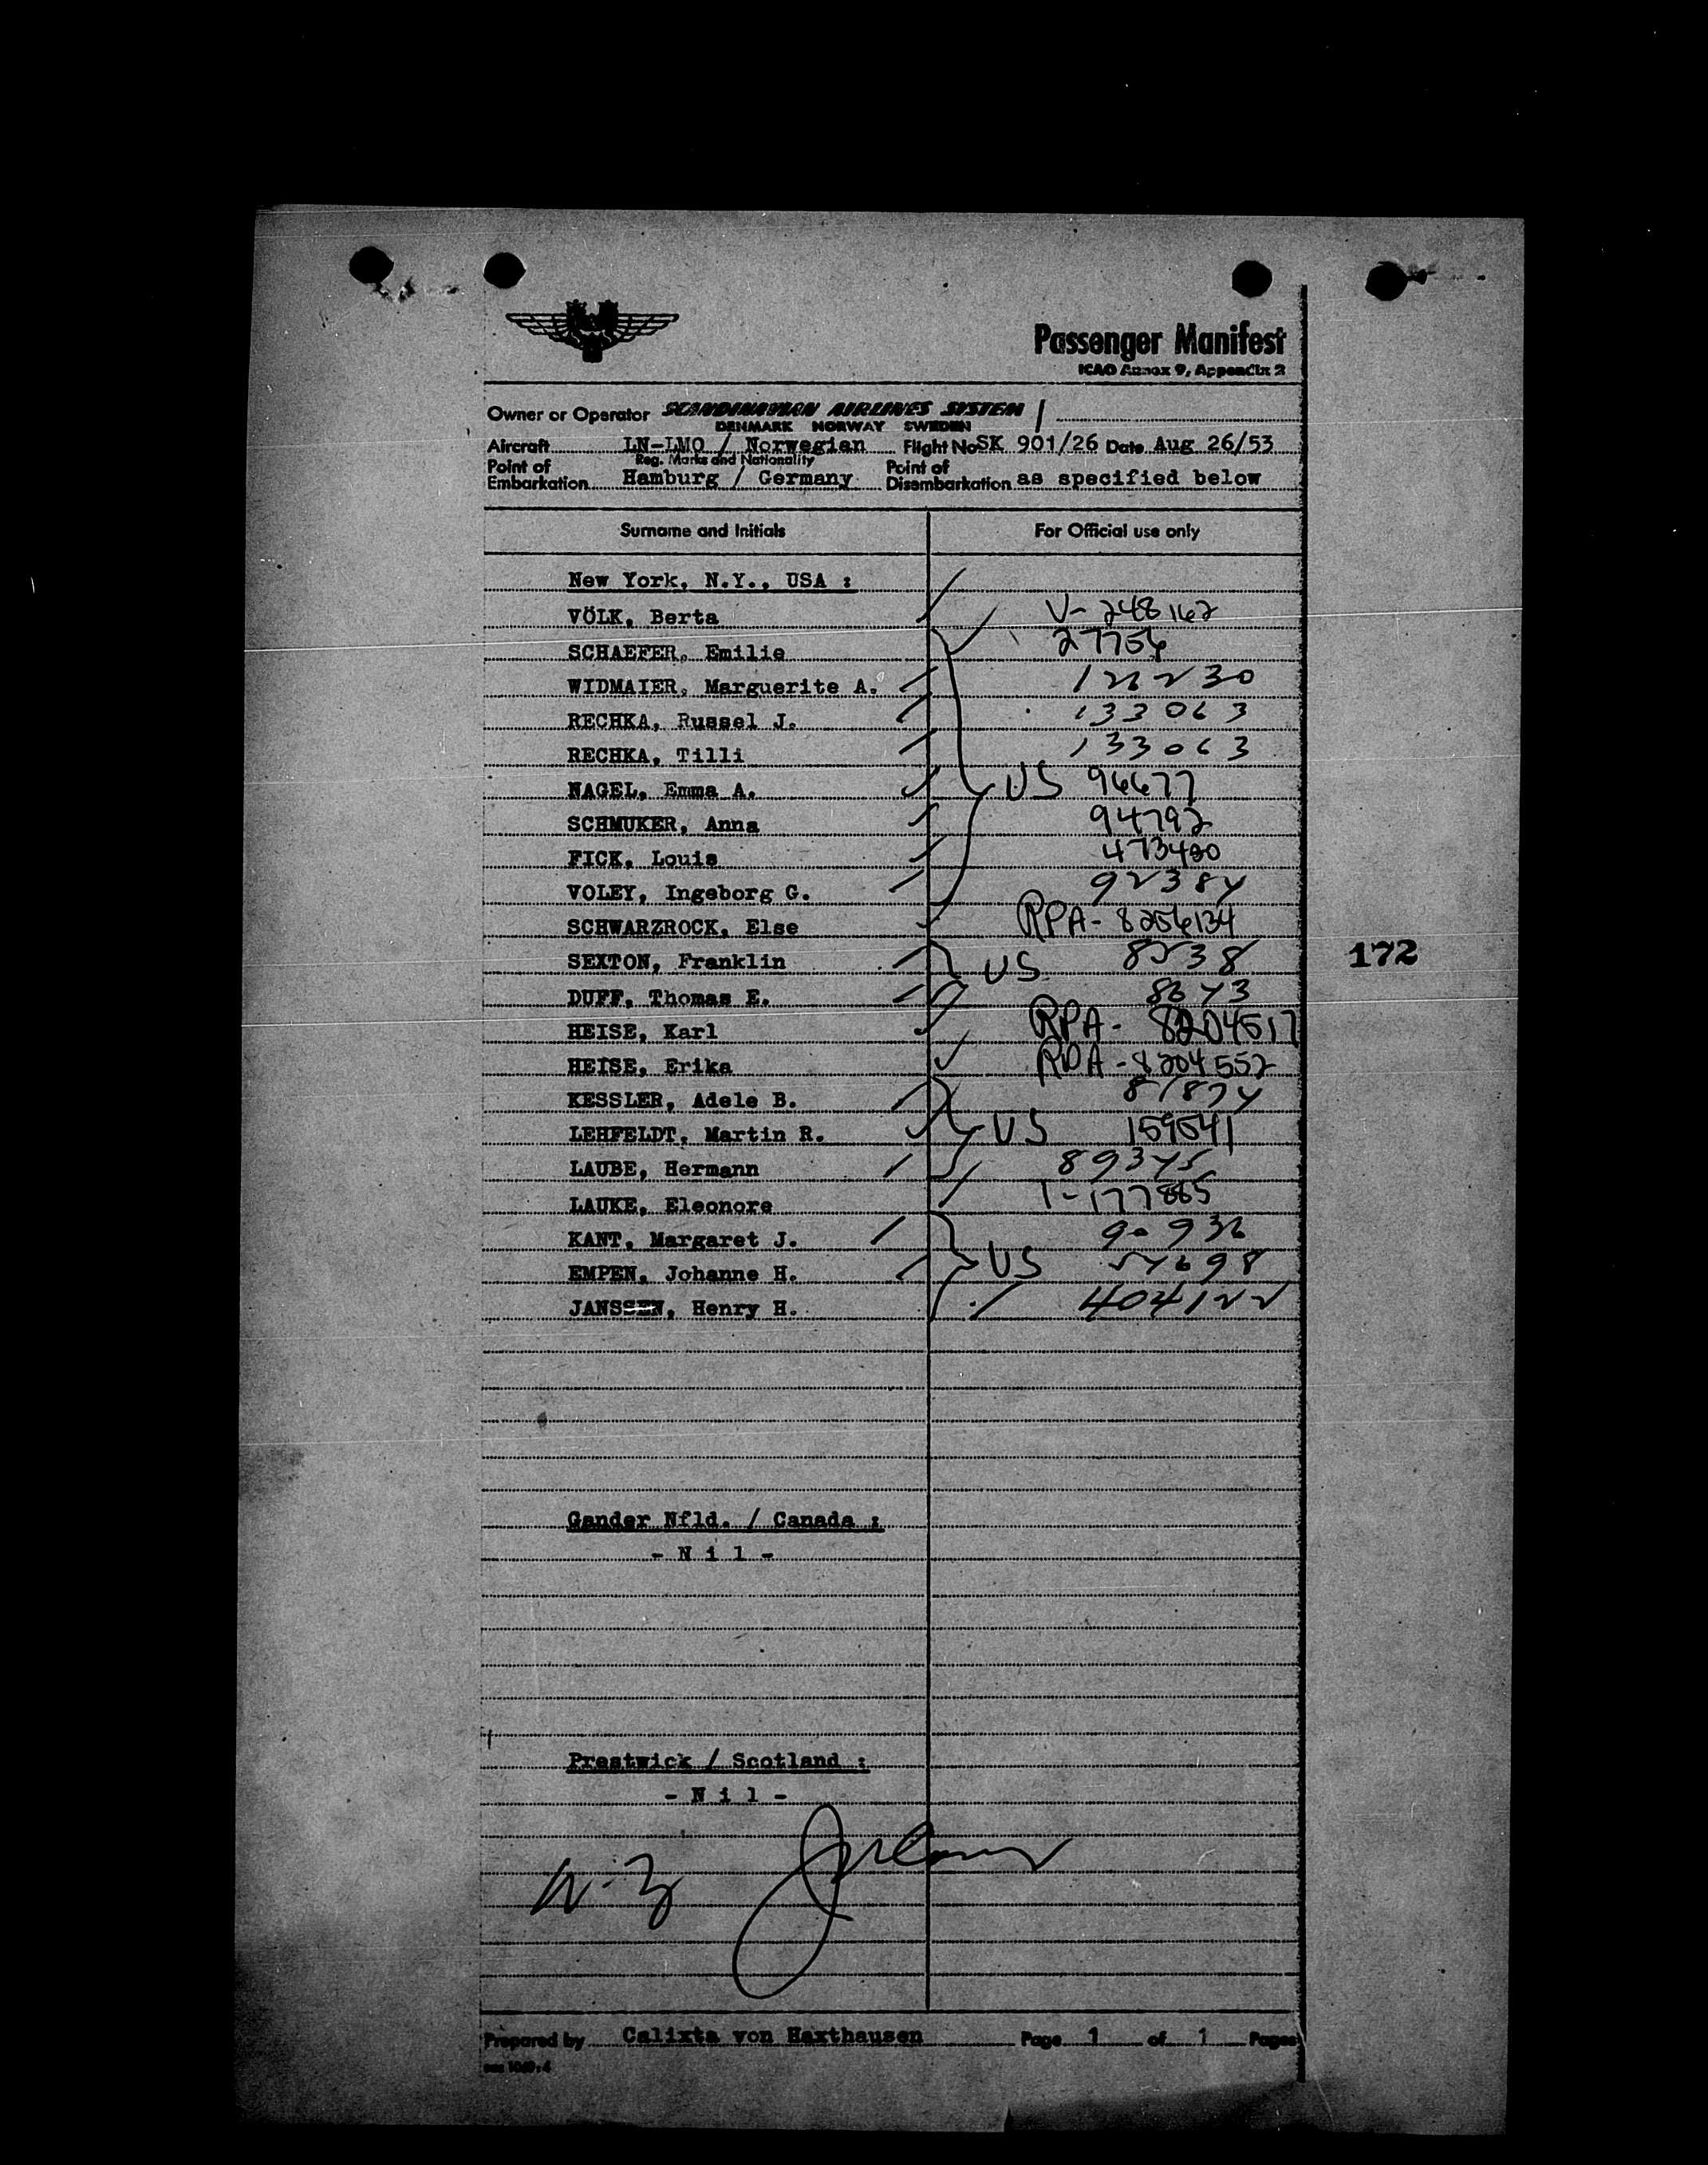 Passenger Manifest
ICAO Annex 9, Appendix 2
Owner or Operator SCANDINAVIAN AIRLINES SYSTEM
DENMARK NORWAY SWEDEN
Aircraft LN-LMO / Norwegian Flight No SK 901/26 Date Aug 26/53
Reg. Marks and Nationality
Point of Embarkation Hamburg / Germany Point of Disembarkation as specified below
Surname and Initials For Official use only
New York, N.Y., USA :
VÖLK, Berta V- 248162
SCHAEFER, Emilie 27756
WIDMAIER, Marguerite A.
RECHKA, Russel J. 133063
RECHKA, Tilli 133063
NAGEL, Emma A. US 96677
SCHMUKER, Anna 94792
FICK, Louis
VOLEY, Ingeborg G.
SCHWARZROCK, Else RPA- 8256134
172
SEXTON, Franklin US
DUFF, Thomas E.
HEISE, Karl RPA- 8204517
HEISE, Erika RPA-8204552
KESSLER, Adele B.
LEHFELDT, Martin R. US 159541
LAUBE, Hermann
LAUKE, Eleonore
KANT, Margaret J.
EMPEN, Johanne H. US
JANSSEN, Henry H. 404122
Gander Nfld. / Canada :
- N i l -
Prestwick / Scotland :
- N i l -
Prepared by Calixta von Haxthausen Page 1 of 1 Pages